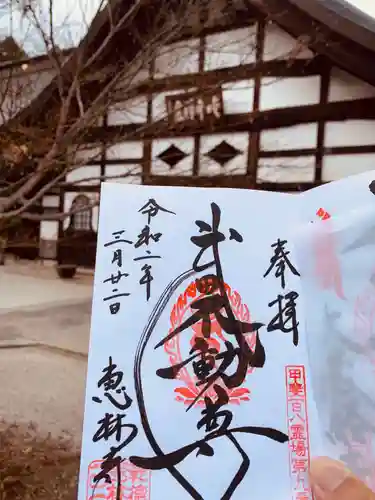 奉拝
甲斐百八霊場第
武田不動尊
令和二年
三月廿二日
恵林寺